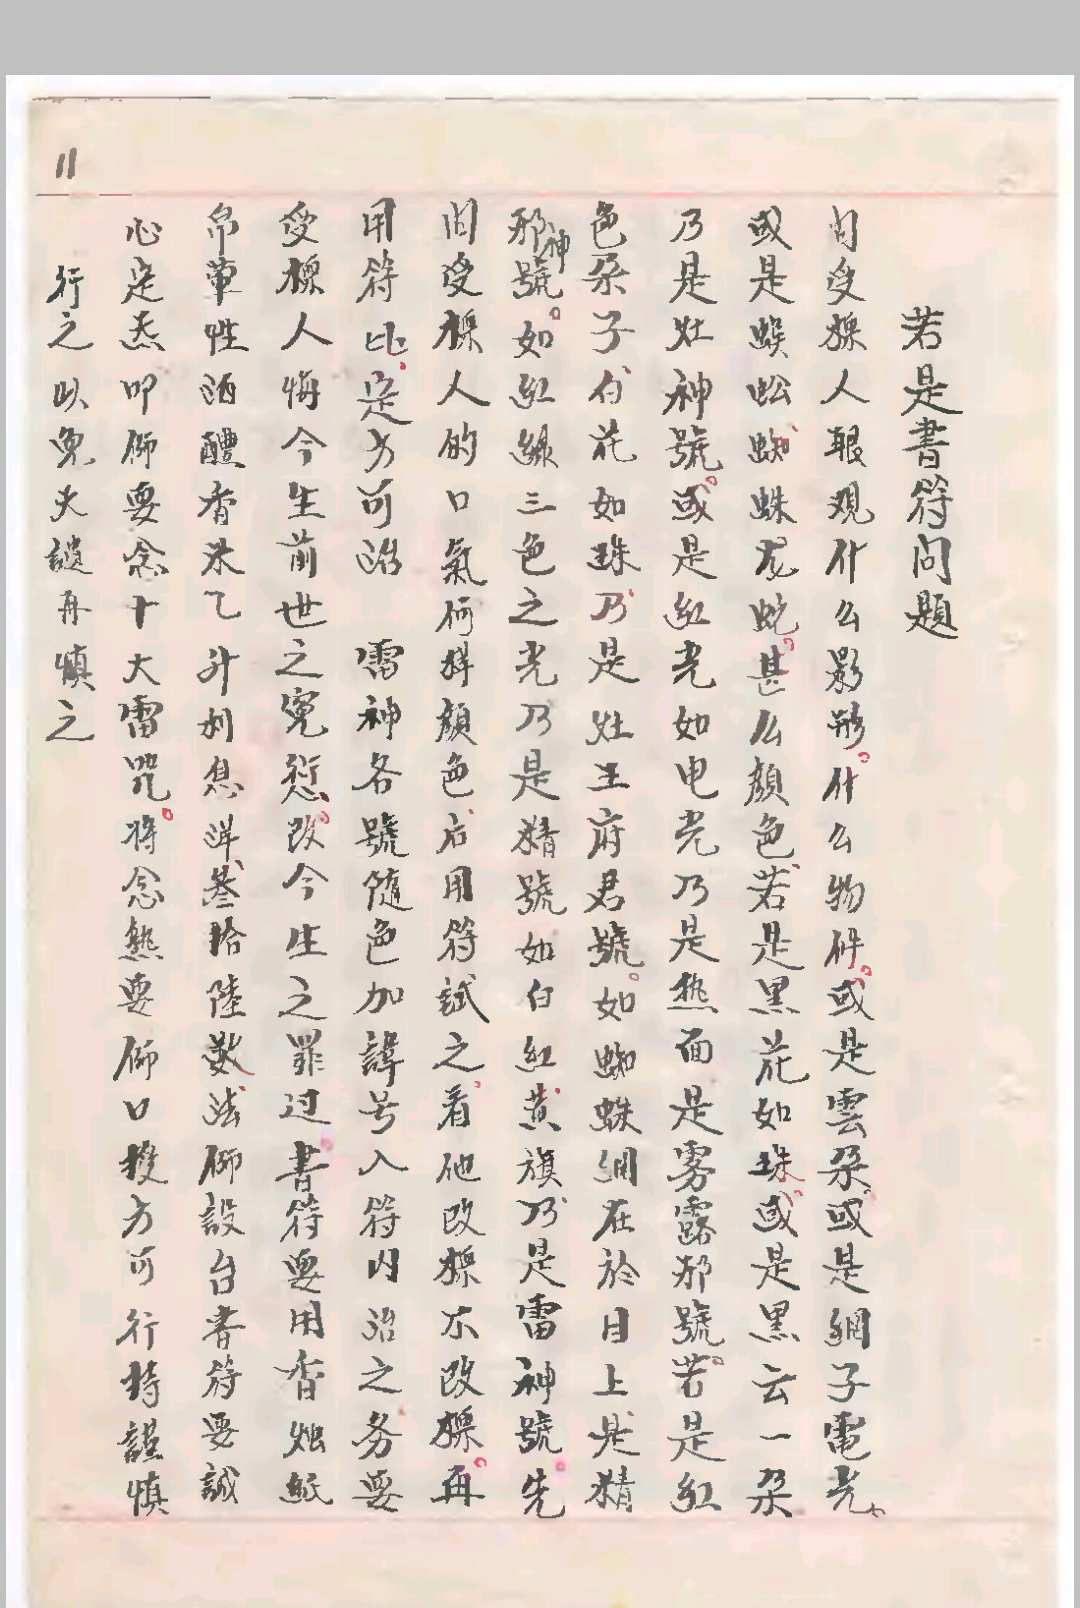 11
若是書符問題
問受標人眼观什么影形。什么物件。或是雲朵、或是網子電光、
或是蜈蚣蜘蛛龙蛇。甚么顏色、若是黑花如珠。或是黑云一朵
乃是灶神號。或是红光如电光乃是熱面是雾露邪號。若是红
色朵子白花如珠、乃是灶王府君號。如蜘蛛網在於目上、是精
邪神號。如红綠三色之光乃是精號如白红黄旗乃是雷神號。先
問受標人的口氣何样顏色、后用符試之、看他改標不改標。再
用符比、定方可治 雷神各號隨色加諱号入符内治之务要
受標人悔今生前世之冤愆。改今生之罪过。書符要用香烛紙
帛葷性酒醴香米乙升利息洋叁拾陸數、法師設台書符要誠
心定炁叩師要念十大雷咒。将念熟要師口授方可行持謹慎
行之以免天譴再慎之